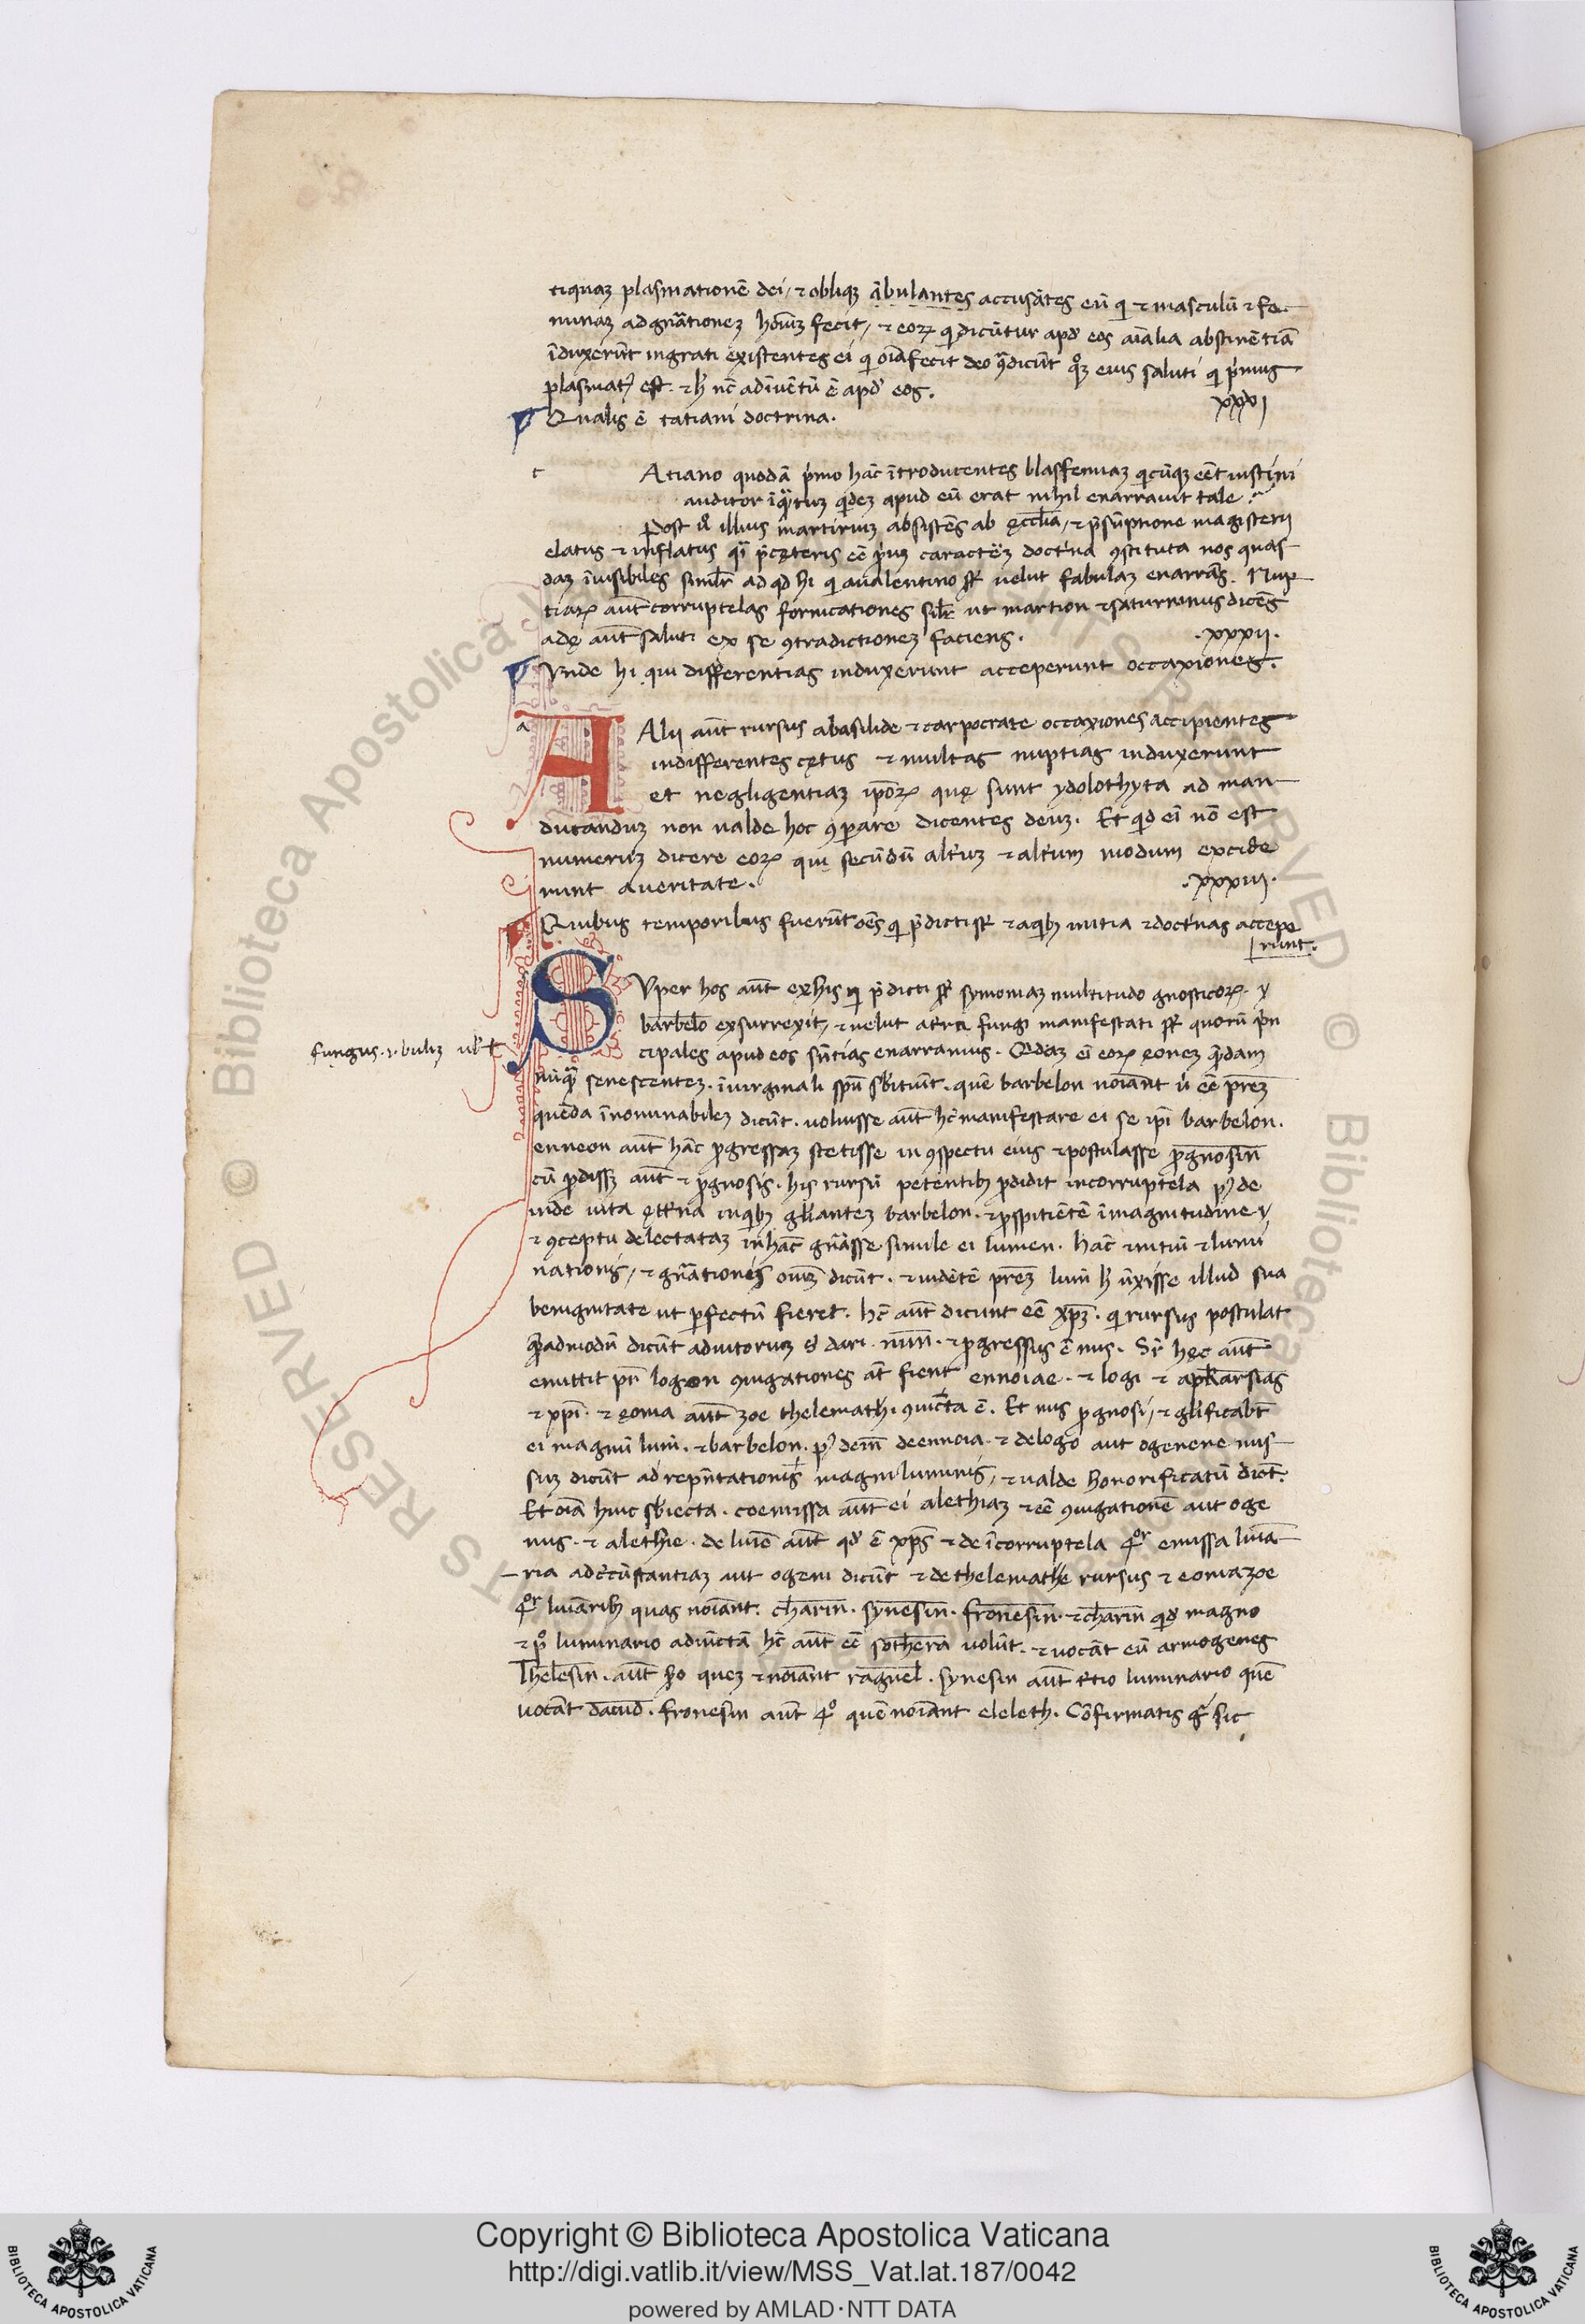 tiquaz plasmationē dei / ⁊ obliqȝ ābulantes accusātes eū qi ⁊ masculū ⁊ fœ
minaz ad gnātionez hoīuz fecit / ⁊ eoꝝ qi dicūtur apᵈ eos aīalia abstinētiā
īduxerūt ingrati existentes ei qi oīa fecit deo
plasmatꝰ est. ⁊ h nc̄ adīuētū ē apᵈ eos.
xxxi
Qualis ē tatiani doctrina.
t
Atiano quodā pⁱmo hāc ītroducentes blasfemiaz qicūqȝ eēt iustini
auditor īqᵃtuz qⁱdez apud eū erat nihil enarrauit tale
Post illius martiriuz absistēs ab ęccl̄ia / ⁊ p̄sūptione magisterii
elatus ⁊ inflatus qⁱ p̄cęteris eē caracteȝ doctⁱna ꝯstituta nos quas
daz īuisibiles simlʳ ad qd hi qi a ualentino st uelut fabulaz enarrās. Nup
tiaꝝ aut̄ corruptelas fornicationes silr̄ ut martion ⁊ saturninus dicēs
adę aut̄ saluti ex se ꝯtradictionez faciens.
.xxxii.
Vnde hi qui differentias induxerunt acceperunt occaxiones.
a
Alij aut̄ rursus a basilide ⁊ carpocrate occaxiones accipientes
indifferentes cętus ⁊ multas nuptias induxerunt
et negligentiaz ipōꝝ quę sunt ydolothyta ad man
ducanduz non ualde hoc ꝯparare dicentes deuz. Et qⁱd eī nō est
numeruz dicere eoꝝ qui secūdū altⁱuz ⁊ altⁱum modum excide
runt a ueritate.
.xxxiii.
Quibus temporibus fuerūt oēs qi p̄dicti st ⁊ a qⁱbȝ initia ⁊ doctⁱnas accepe
runt.
SVper hos aut̄ ex his qi p̄dicti st symoniaz multitudo gnosticoꝝ. y
barbelo exsurrexit, ⁊ uelut a tr̄a fungi manifestati st quorū pⁱn
fungus. ⁊ buluz
cipales apud eos sn̄tias enarramus. Qdaz eī eoꝝ ęonez qⁱdam
nūqᵃ senescentez. ī uirginali spū sbⁱitiūt. quē barbelon noīant ȗ eē prēz
quēda īnonunabilez dicūt. uoluisse aut̄ hc̄ manifestare ei se ip̄i barbelon.
enneon aut̄ hāc ꝓgressaz stetisse in ꝯspectu eius ⁊ postulasse ꝓgnosin
cū ꝓdissȝ aut̄ ⁊ ꝓgnosis. his rursū petentibȝ ꝓdidit incorruptela pꝰ de
inde uita ęttⁱna in qⁱbȝ gliantez barbelon. ⁊ ꝓspitiētē ī magnitudine y
⁊ ꝯceptu delectataz in hāc gnāsse simile ei lumen. hāc ⁊ initiū ⁊ lumi
nationis / ⁊ gnātiones oīuȝ dicūt. ⁊ uidētē prēz lum̄ h ūxisse illud sua
benignitate ut ꝑfectū fieret. hc̄ aut̄ dicunt eē xpȝ. qi rursus postulat
qᵉadmodū dicūt adiutoruȝ sⁱ dari. nun̄. ⁊ ꝓgressus ē nus. Sr̄ hęc aut̄
emittit pr̄ logon ꝯiugationes at̄ fient ennoiae. ⁊ logi ⁊ apħarsias
⁊ xpi. ⁊ ęoma aut̄ zoe thelemathi ꝯiūcta ē. Et nus ꝓgnosi / ⁊ glificabt̄
ei magnū lum̄. ⁊ barbelon. pꝰ dem̄ de ennoia. ⁊ de logo aut ogenene mis
suȝ dicūt ad repn̄tationis magni luminis, ⁊ ualde honorificatū dict̄.
Et oīa huic sbⁱecta. coemissa aut̄ ei alethiaz ⁊ eē ꝯiugationē aut oge
nus. ⁊ alethie. de lumē aut̄ qᵈ ē xps̄ ⁊ de īcorruptela 4ᵒʳ emissa lumā
ria ad cⁱcūstantiaz aut ogeni dicūt ⁊ de thelemathe rursus ⁊ eoma zoe
4ᵒʳ lumāribȝ quas noīant. charin̄. synesin̄. fronesin̄. ⁊ charin̄ qⁱd magno
⁊ pᵒ luminario adiūctā hc̄ aut̄ eē sotherā uolūt. ⁊ uocāt eū armogenes
Thelesin̄. aut̄ quez ⁊ noīant raguel. synesin aut̄ tⁱtio luminario quē
uocāt dacud. fronesin aut̄ 4ᵒ quē noīant eleleth. Cōfirmatis gⁱ sic
Copyright © Biblioteca Apostolica Vaticana
http://digi.vatlib.it/view/MSS_Vat.lat.187/0042
powered by AMLAD·NTT DATA
BIBLIOTECA APOSTOLICA VATICANA
BIBLIOTECA APOSTOLICA VATICANA